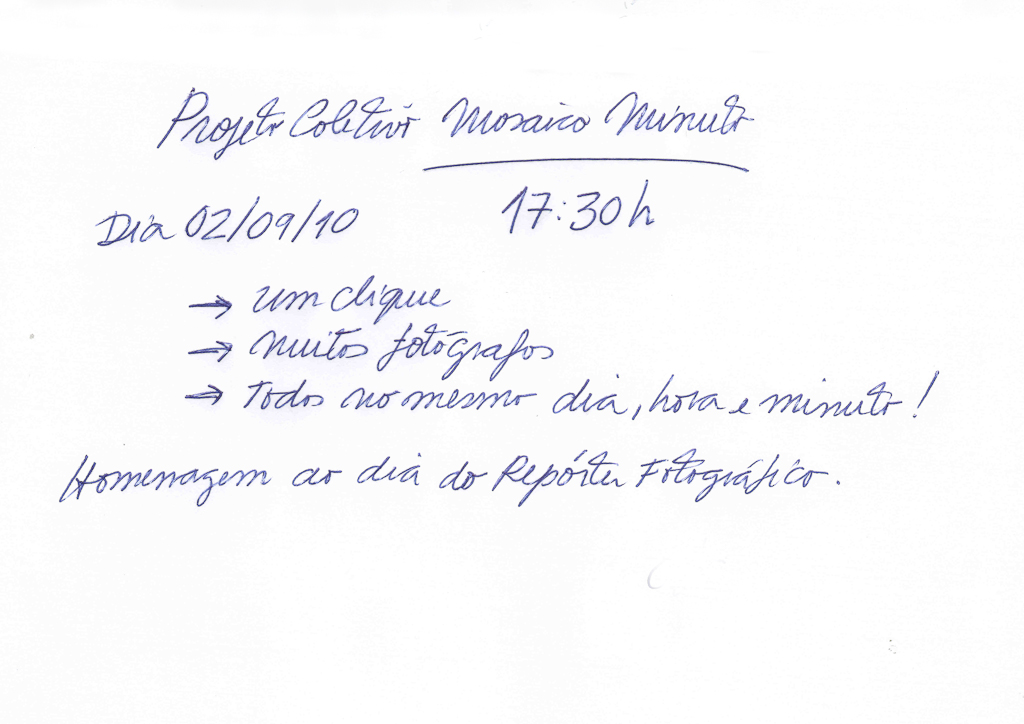 Projeto Coletivo Mosaico Minuto
Dia 02/09/10 17:30h
→ um clique
→ muitos fotógrafos
→ Todos no mesmo dia, hora e minuto!
Homenagem ao dia do Repórter Fotográfico.